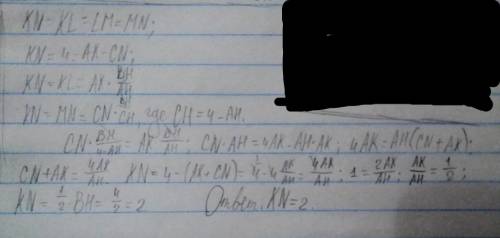 KN = KL = LM = MN;
KN = 4 = AK - CN;
KN = KL = AK · BH/AH
KN = MN = CN · BH/CH, где CH = 4 - AH.
CN · BH/4-AH = AK · BH/AH; CN · AH = 4AK - AH · AK; 4AK = AH(CN + AK);
CN + AK = 4AK/AH KN = 4 - (AK + CN) = 4 · AK/AH = 4AK/AH; 1 = 2AK/AH; AK/AH = 1/2;
KN = 1/2 BH = 4/2 = 2 Ответ: KN = 2.